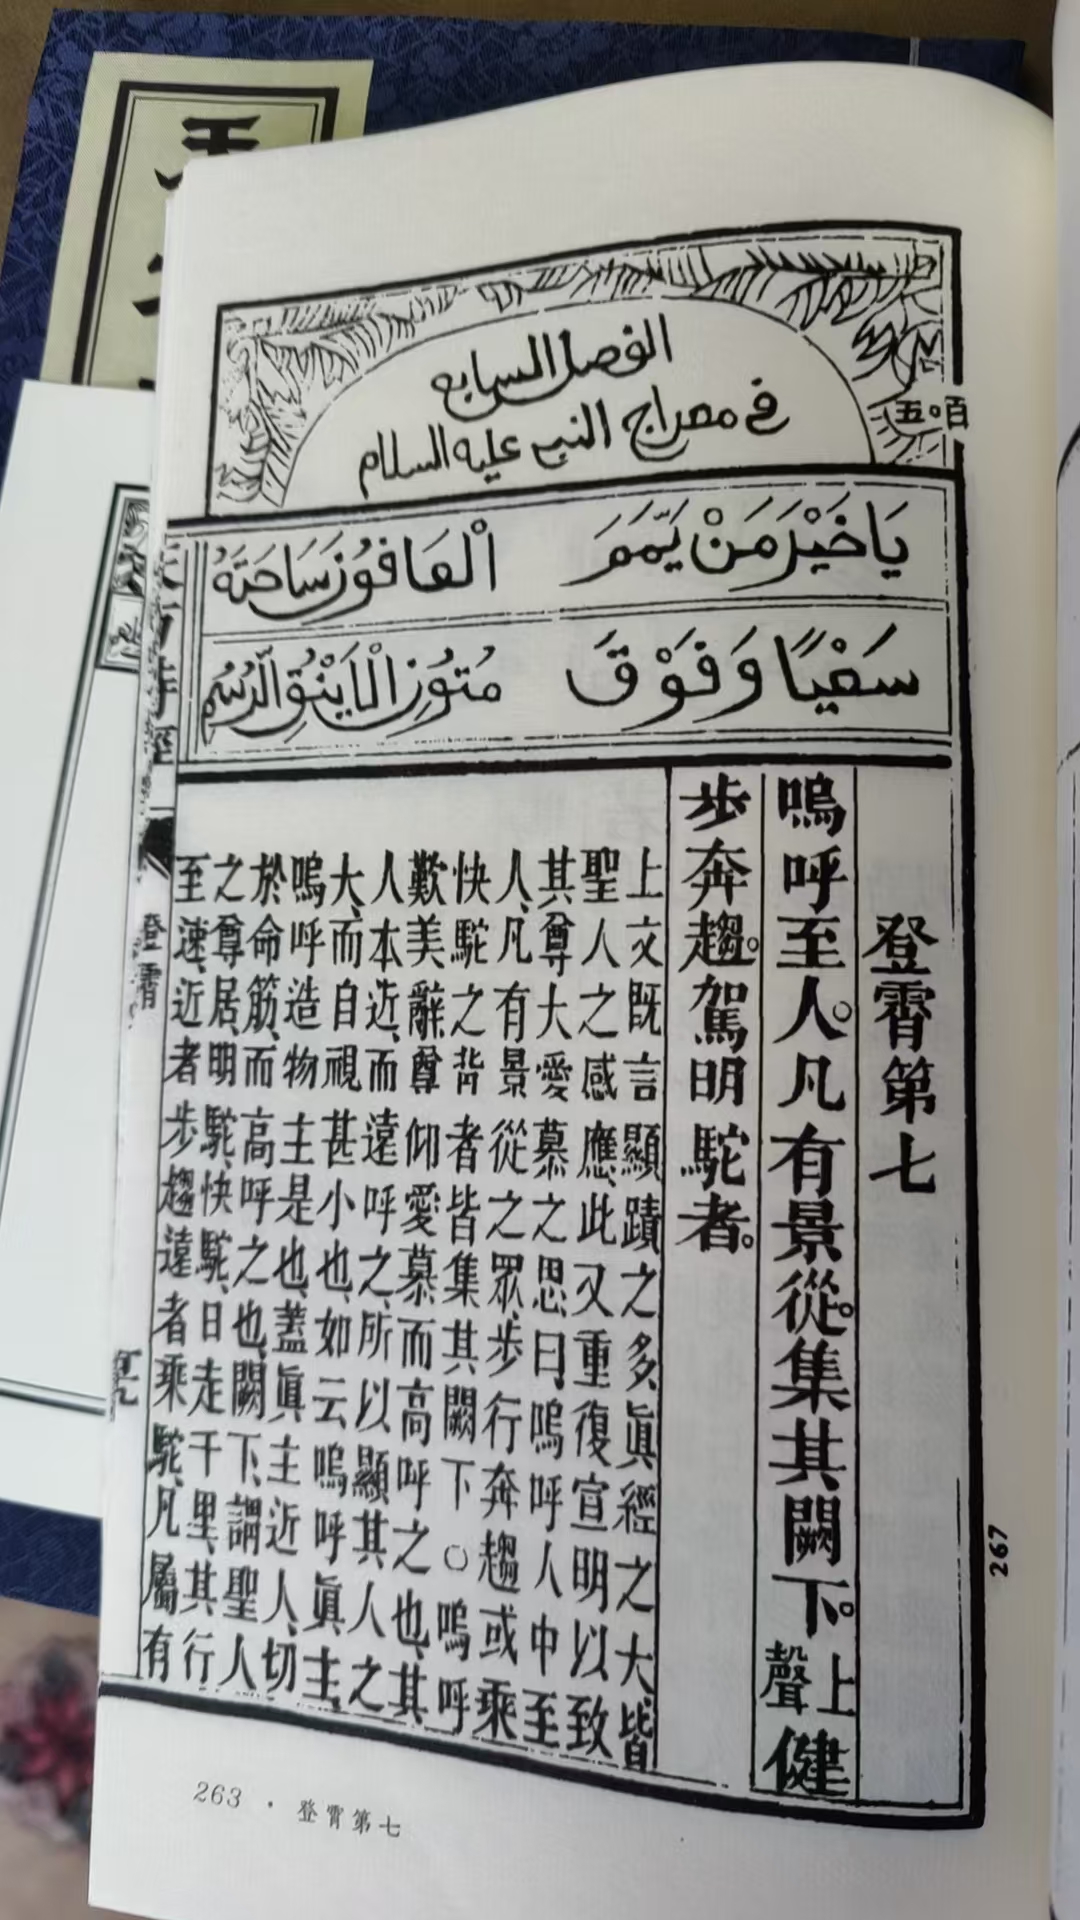 الفصل السابع
في معراج النبي عليه السلام
百○五
يَا خَيْرَ مَنْ يَمَّمَ الْعَافُونَ سَاحَتَهُ
سَعْيًا وَفَوْقَ مُتُونِ الْأَيْنُقِ الرُّسُمِ
登霄第七
嗚呼至人。凡有景從。集其闕下。上聲健
步奔趨。駕明駝者。
上文既言顯蹟之多、眞經之大、皆
聖人之感應、此又重復宣明以致
其尊大愛慕之思曰、嗚呼人中至
人、凡有景從之眾、步行奔趨或乘
快駝之背者皆集其闕下○嗚呼
歎美辭尊仰愛慕而高呼之也、其
人本近、而遠呼之、所以顯其人之
大、而自視甚小也、如云嗚呼眞主、
嗚呼造物主是也、蓋眞主近人、切
於命筋、而高呼之也、闕下、謂聖人
之尊居、明駝、快駝、日走千里、其行
至速、近者步趨遠者乘駝、凡屬有
天方詩經
登霄
267
263 · 登霄第七